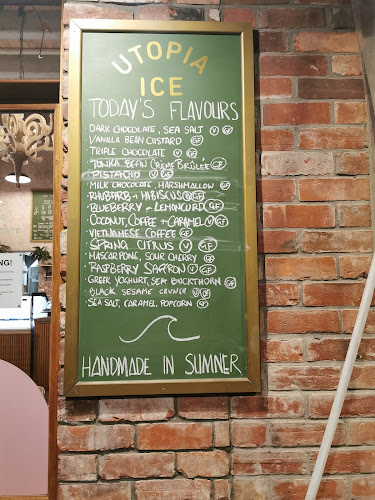 UTOPIA
ICE
TODAY'S FLAVOURS
· DARK CHOCOLATE, SEA SALT V GF
· VANILLA BEAN CUSTARD GF
· TRIPLE CHOCOLATE V GF
· TONKA BEAN CRÈME BRÛLÉE GF
· PISTACHIO V GF
· MILK CHOCOLATE, MARSHMALLOW GF
· RHUBARB + HIBISCUS V GF
· BLUEBERRY + LEMONCURD GF
· COCONUT, COFFEE + CARAMEL V GF
· VIETNAMESE COFFEE GF
· SPRING CITRUS V GF
· MASCARPONE, SOUR CHERRY GF
· RASPBERRY SAFFRON V GF
· GREEK YOGHURT, SEA BUCKTHORN GF
· BLACK SESAME CRUNCH V GF
· SEA SALT, CARAMEL, POPCORN GF
HANDMADE IN SUMNER
NG!